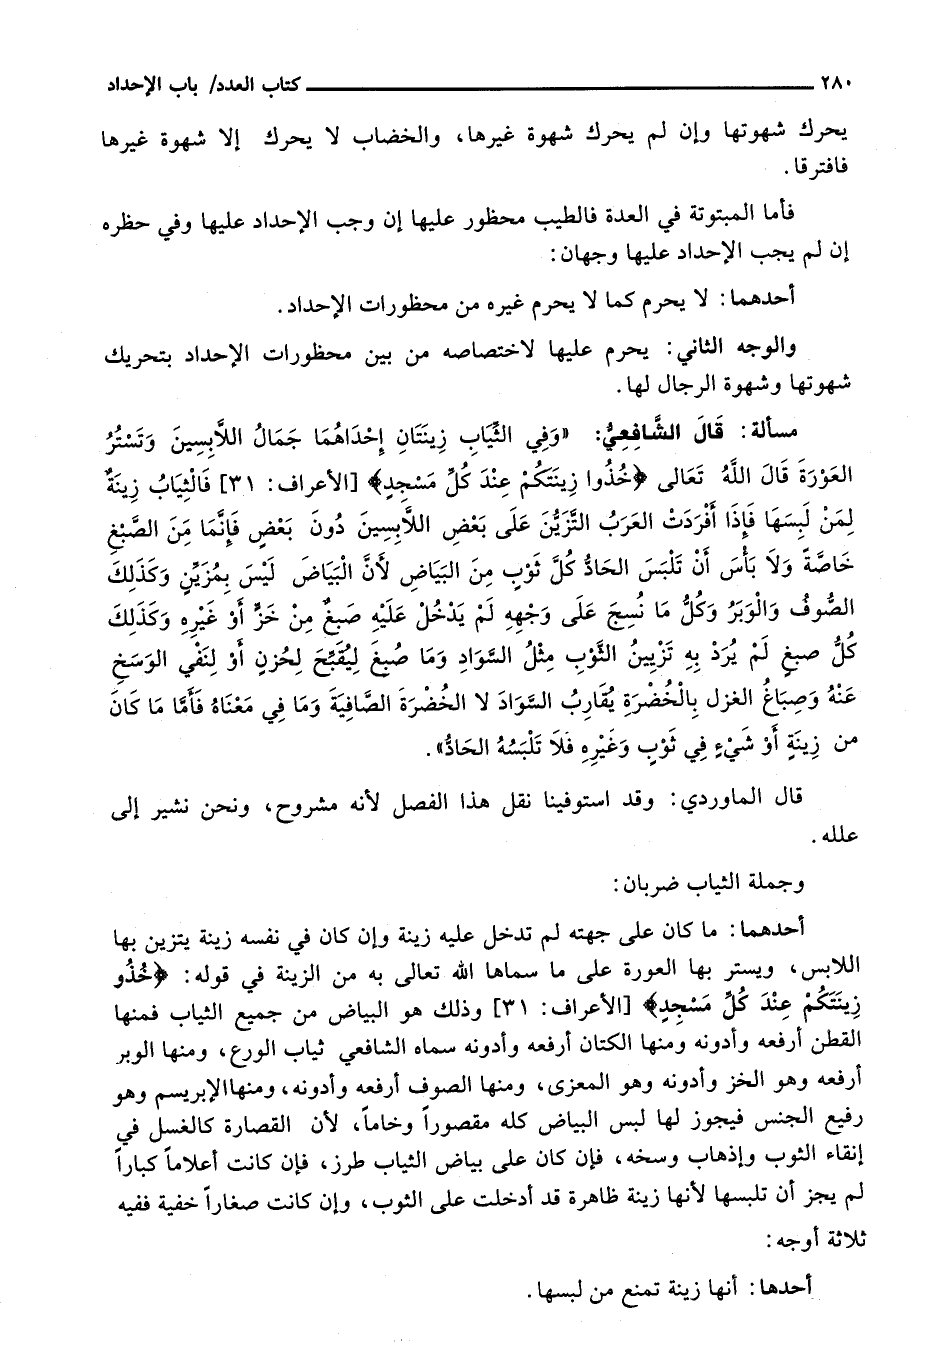 ٢٨٠ كتاب العدد/ باب الإحداد
يحرك شهوتها وإن لم يحرك شهوة غيرها، والخضاب لا يحرك إلا شهوة غيرها
فافترقا.
فأما المبتوتة في العدة فالطيب محظور عليها إن وجب الإحداد عليها وفي حظره
إن لم يجب الإحداد عليها وجهان:
أحدهما: لا يحرم كما لا يحرم غيره من محظورات الإحداد.
والوجه الثاني: يحرم عليها لاختصاصه من بين محظورات الإحداد بتحريك
شهوتها وشهوة الرجال لها.
مسألة: قَالَ الشَّافِعِيُّ: «وَفِي الثِّيَابِ زِينَتَانِ إِحْدَاهُمَا جَمَالُ اللَّابِسِينَ وَتَسْتُرُ
العَوْرَةَ قَالَ اللَّهُ تَعَالى ﴿خُذُوا زِينَتَكُمْ عِنْدَ كُلِّ مَسْجِدٍ﴾ [الأعراف: ٣١] فَالْثِيَابُ زِينَةٌ
لِمَنْ لَبِسَهَا فَإِذَا أَفْرَدَتْ العَرَبُ التَّزَيُّنَ عَلَى بَعْضِ اللَّابِسِينَ دُونَ بَعْضٍ فَإِنَّمَا مَِنَ الصَّبْغِ
خَاصَّةً وَلَا بَأْسَ أَنْ تَلْبَسَ الحَادُّ كُلَّ ثَوْبٍ مِنَ البَيَاضِ لأَنَّ الْبَيَاضَ لَيْسَ بِمُزَيِّنٍ وَكَذَلِكَ
الصُّوفُ وَالْوَبَرُ وَكُلُّ مَا نُسِجَ عَلَى وَجْهِهِ لَمْ يَدْخُلْ عَلَيْهِ صَبْغٌ مِنْ خَزٍّ أَوْ غَيْرِهِ وَكَذَلِكَ
كُلُّ صبغٍ لَمْ يُرَدْ بِهِ تَزْيِينُ الثَّوْبِ مِثْلُ السَّوَادِ وَمَا صُبِغَ لِيُقَبِّحَ لِحُزنٍ أَوْ لِنَفْي الوَسَخِ
عَنْهُ وَصِبَاغُ الغزل بِالْخُضْرَةِ يُقَارِبُ السَّوَادَ لا الخُضْرَةَ الصَّافِيَةَ وَمَا فِي مَعْنَاهُ فَأَمَّا مَا كَانَ
من زِينَةٍ أَوْ شَيْءٍ فِي ثَوْبٍ وَغَيْرِهِ فَلَا تَلْبَسُهُ الحَادُّ».
قال الماوردي: وقد استوفينا نقل هذا الفصل لأنه مشروح، ونحن نشير إلى
علله.
وجملة الثياب ضربان:
أحدهما: ما كان على جهته لم تدخل عليه زينة وإن كان في نفسه زينة يتزين بها
اللابس، ويستر بها العورة على ما سماها الله تعالى به من الزينة في قوله: ﴿خُذُو
زِينَتَكُمْ عِنْدَ كُلِّ مَسْجِدٍ﴾ [الأعراف: ٣١] وذلك هو البياض من جميع الثياب فمنها
القطن أرفعه وأدونه ومنها الكتان أرفعه وأدونه سماه الشافعي ثياب الورع، ومنها الوبر
أرفعه وهو الخز وأدونه وهو المعزى، ومنها الصوف أرفعه وأدونه، ومنهاالإبريسم وهو
رفيع الجنس فيجوز لها لبس البياض كله مقصوراً وخاماً، لأن القصارة كالغسل في
إنقاء الثوب وإذهاب وسخه، فإن كان على بياض الثياب طرز، فإن كانت أعلاماً كباراً
لم يجز أن تلبسها لأنها زينة ظاهرة قد أدخلت على الثوب، وإن كانت صغاراً خفية ففيه
ثلاثة أوجه:
أحدها: أنها زينة تمنع من لبسها.